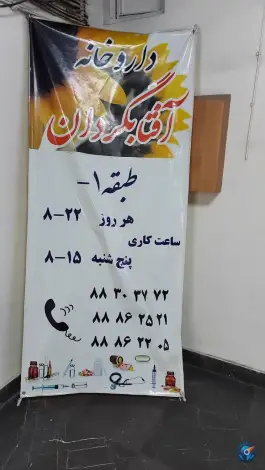 داروخانه
آفتابگردان
طبقه ۱-
هر روز ۲۲-۸
ساعت کاری
پنج شنبه ۱۵-۸
۸۸ ۳۰ ۳۷ ۷۲
۸۸ ۸۶ ۲۵ ۲۱
۸۸ ۸۶ ۲۲ ۰۵